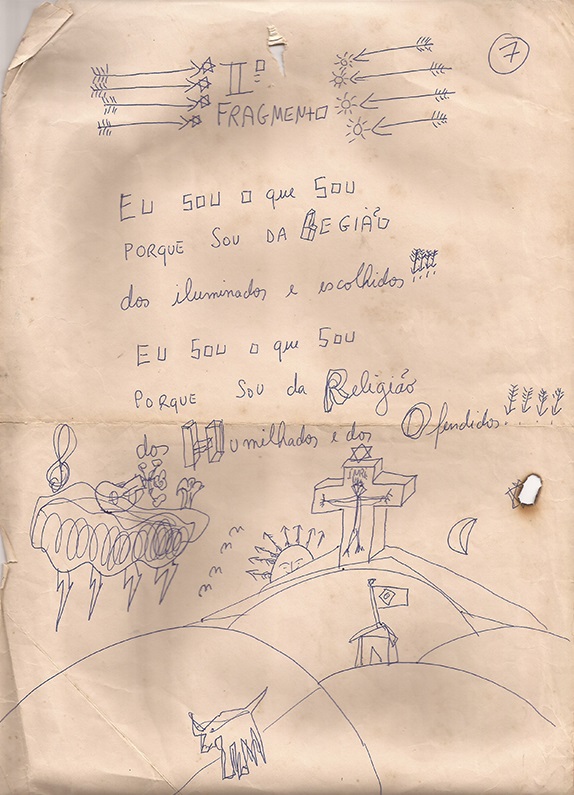 7
IIº
FRAGMENTO
EU SOU O que SOU
PORQUE SOU DA LEGIÃO
dos iluminados e escolhidos !!!!
EU SOU O que SOU
PORQUE SOU da Religião
dos Humilhados e dos Ofendidos....
INRI